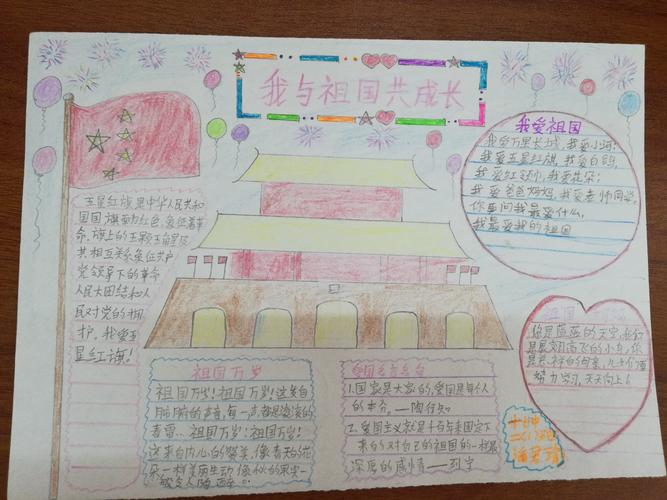 我与祖国共成长
五星红旗是中华人民共和
国国旗。旗面为红色,象征着革
命。旗上的五颗五角星及
其相互关系象征共产
党领导下的革命
人民大团结和人
民对党的拥
护。我爱五
星红旗!
我爱祖国
我爱万里长城,我爱小河;
我爱五星红旗,我爱白鸽,
我爱红领巾,我爱花朵;
我爱爸爸妈妈,我爱老师同学。
你要问我最爱什么,
我最爱我的祖国
祖国
你是蔚蓝的天空,我们
是展翅高飞的小鸟,你
是慈祥的母亲,
努力学习,天天向上!
祖国万岁
祖国万岁!祖国万岁!这发自
肺腑的声音,每一声都是滚滚的
春雷、祖国万岁!祖国万岁!
这来自内心的赞美,像春天的花
朵一样美丽生动,像秋的果实一
爱国名言名句
1.国家是大家的,爱国是每个人
的本分。——陶行知
2.爱国主义就是千百年来固定下
来的对自己的祖国的一种最
深厚的感情——列宁